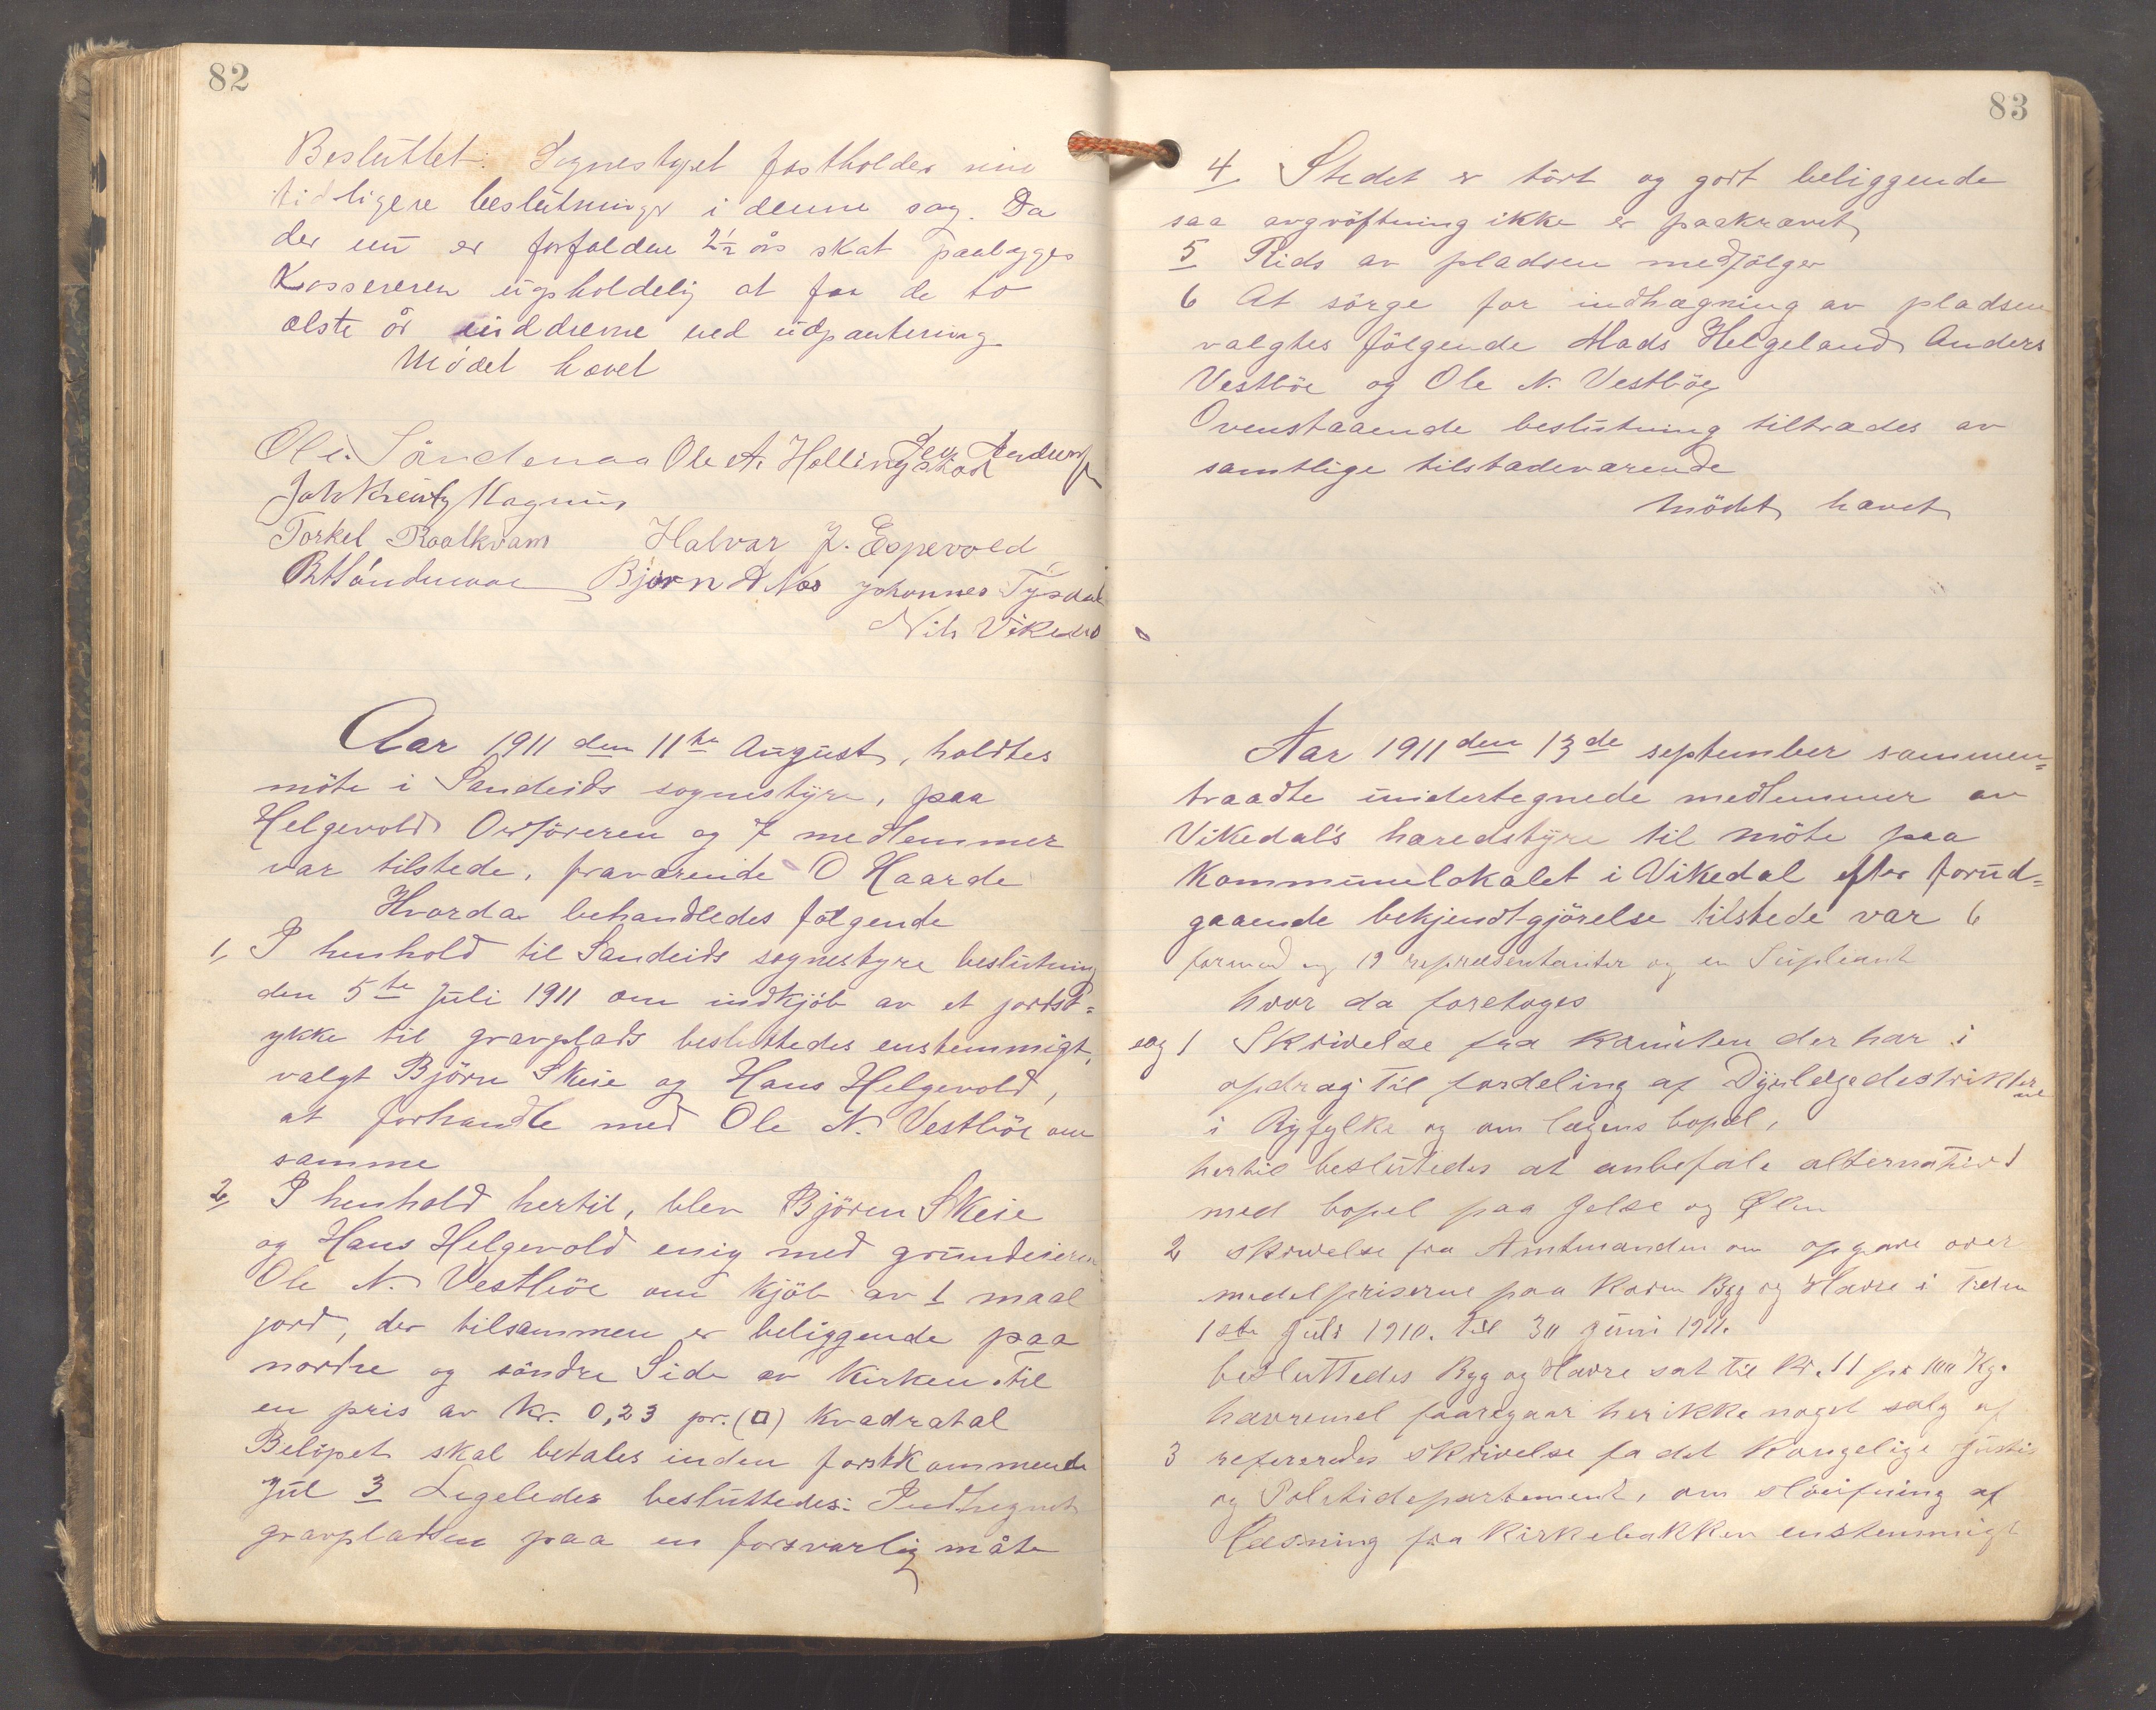 82
Besluttet: Sognestyret fastholder sine
tidligere beslutninger i denne sag. Da
der nu er forfalden 2½ års skat paalægges
Kassereren uopholdelig at faa de to
ælste år inddrevne ved udpantering
Mödet hævet
Ole Söndenaa Ole A. Hellingstad
Joh Kreutz Magnus
Torkel Raalkvam Halvar J. Espevold
Björn A Næs Johannes Tysdal
Nils Vikedal
Aar 1911 den 11te August, holdtes
möte i Sandeids sognestyre, paa
Helgevold Ordföreren og 7 medlemmer
var tilstede, fraværende O Haarde
Hvorda behandledes fölgende
1, I henhold til Sandeids sognestyre beslutning
den 5te Juli 1911 om indkjöb av et jordst=
ykke til gravplads besluttedes enstemmigt,
valgt Björn Skeie og Hans Helgevold,
at forhandle med Ole N. Vestböe om
samme
2, I henhold hertil, blev Björn Skeie
og Hans Helgevold enig med grundeieren
Ole N. Vestböe om kjöb av 1 maal
jord, der tilsammen er beliggende paa
nordre og söndre Side av Kirken til
en pris av Kr. 0,23 pr. (□) Kvadratal
Belöpet skal betales inden förstkommende
Jul 3 Legeledes besluttedes: Indhegnet
gravpladsen paa en forsvarlig måte
83
4 Stedet er tört og godt beliggende
saa avgröftning ikke er paakrævet
5 Rids av pladsen medfölger
6 At sörge for indhægning av pladsen
valgtes fölgende Mads Helgeland Anders
Vestböe og Ole N. Vestböe
Ovenstaaende beslutning tiltrædes av
samtlige tilstedeværende
Mödet hævet
Aar 1911 den 13de september sammen=
traadte undertegnede medlemmer av
Vikedal's heredstyre til möte paa
Kommunelokalet i Vikedal efter forud=
gaaende bekjendtgjörelse tilstede var 6
formænd og 19 representanter og en Supleant
hvor da foretoges
sag 1 Skrivelse fra komiten der har i
opdrag til fordeling af Dyrlægedestrikterne
i Ryfylke og om lægens bopæl,
hertil beslutedes at anbefale alternativ 1
med bopel paa Jelse og Ølen
2 skrivelse fra Amtmanden om opgave over
medelpriserne paa Korn Byg og Havre i tiden
1ste Juli 1910. til 30 Juni 1911.
besluttedes Byg og Havre sat til Kr. 11 pr 100 Kg.
havremel foaregaar her ikke noget salg af
3 refereredes skrivelse fa det Kongelige Justis
og Politidepartement, om slöifning af
Læsning fra Kirkebakken enstemmigt